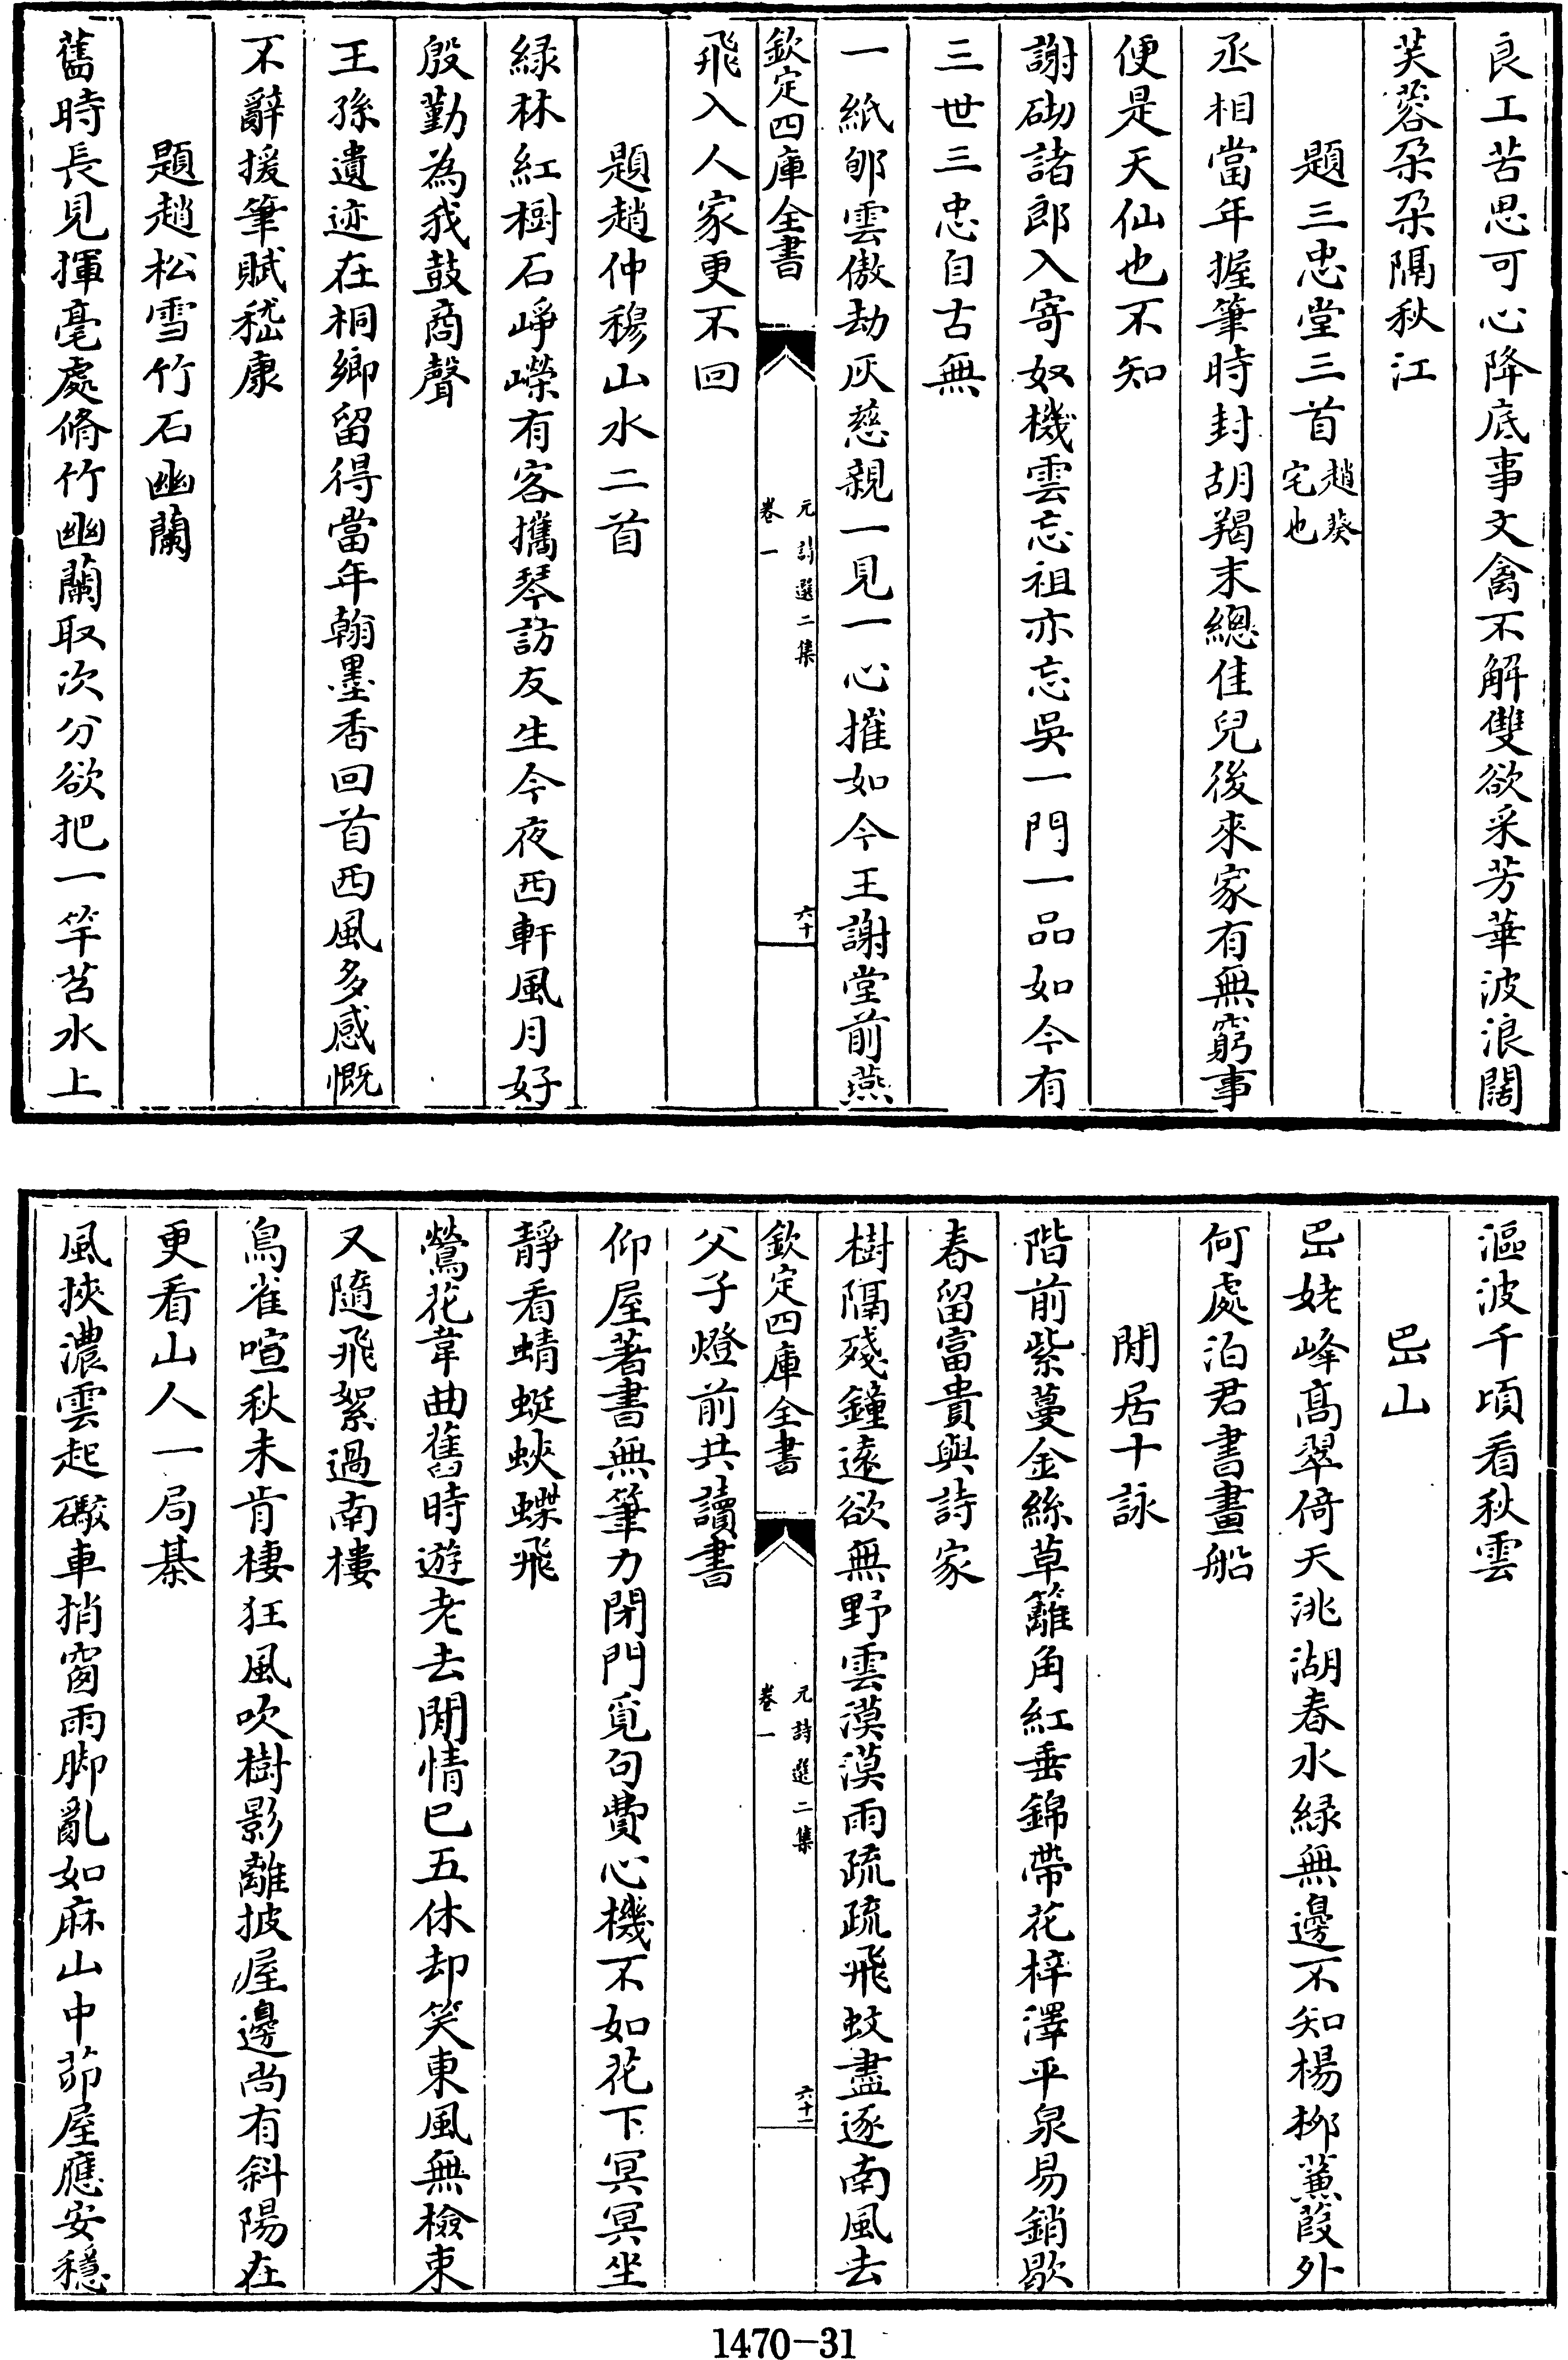 良工苦思可心降底事文禽不解雙欲采芳華波浪闊
芙蓉朶朶隔秋江
題三忠堂三首趙葵宅也
丞相當年握筆時封胡羯末總佳兒後來家有無窮事
便是天仙也不知
謝砌諸郎入寄奴機雲忘祖亦忘吳一門一品如今有
三世三忠自古無
一紙郇雲傲劫灰慈親一見一心摧如今王謝堂前燕
欽定四庫全書
元詩選二集
卷一
六十
飛入人家更不回
題趙仲穆山水二首
緑林紅樹石崢嶸有客攜琴訪友生今夜西軒風月好
殷勤為我鼓商聲
王孫遺迹在桐鄉留得當年翰墨香回首西風多感慨
不辭援筆賦嵇康
題趙松雪竹石幽蘭
舊時長見揮毫處脩竹幽蘭取次分欲把一竿苕水上
漚波千頃看秋雲
岊山
岊姥峰高翠倚天洮湖春水緑無邊不知楊栁蒹葭外
何處泊君書畫船
閒居十詠
階前紫蔓金絲草籬角紅垂錦帶花梓澤平泉易銷歇
春留富貴與詩家
樹隔殘鐘遠欲無野雲漠漠雨疏疏飛蚊盡逐南風去
欽定四庫全書
元詩選二集
卷一
六十一
父子燈前共讀書
仰屋著書無筆力閉門覓句費心機不如花下冥冥坐
靜看蜻蜓蛺蝶飛
鶯花韋曲舊時遊老去閒情已五休却笑東風無檢束
又隨飛絮過南樓
鳥雀喧秋未肯棲狂風吹樹影離披屋邊尚有斜陽在
更看山人一局棊
風挾濃雲起礮車捎窗雨脚亂如麻山中茆屋應安穩
1470-31